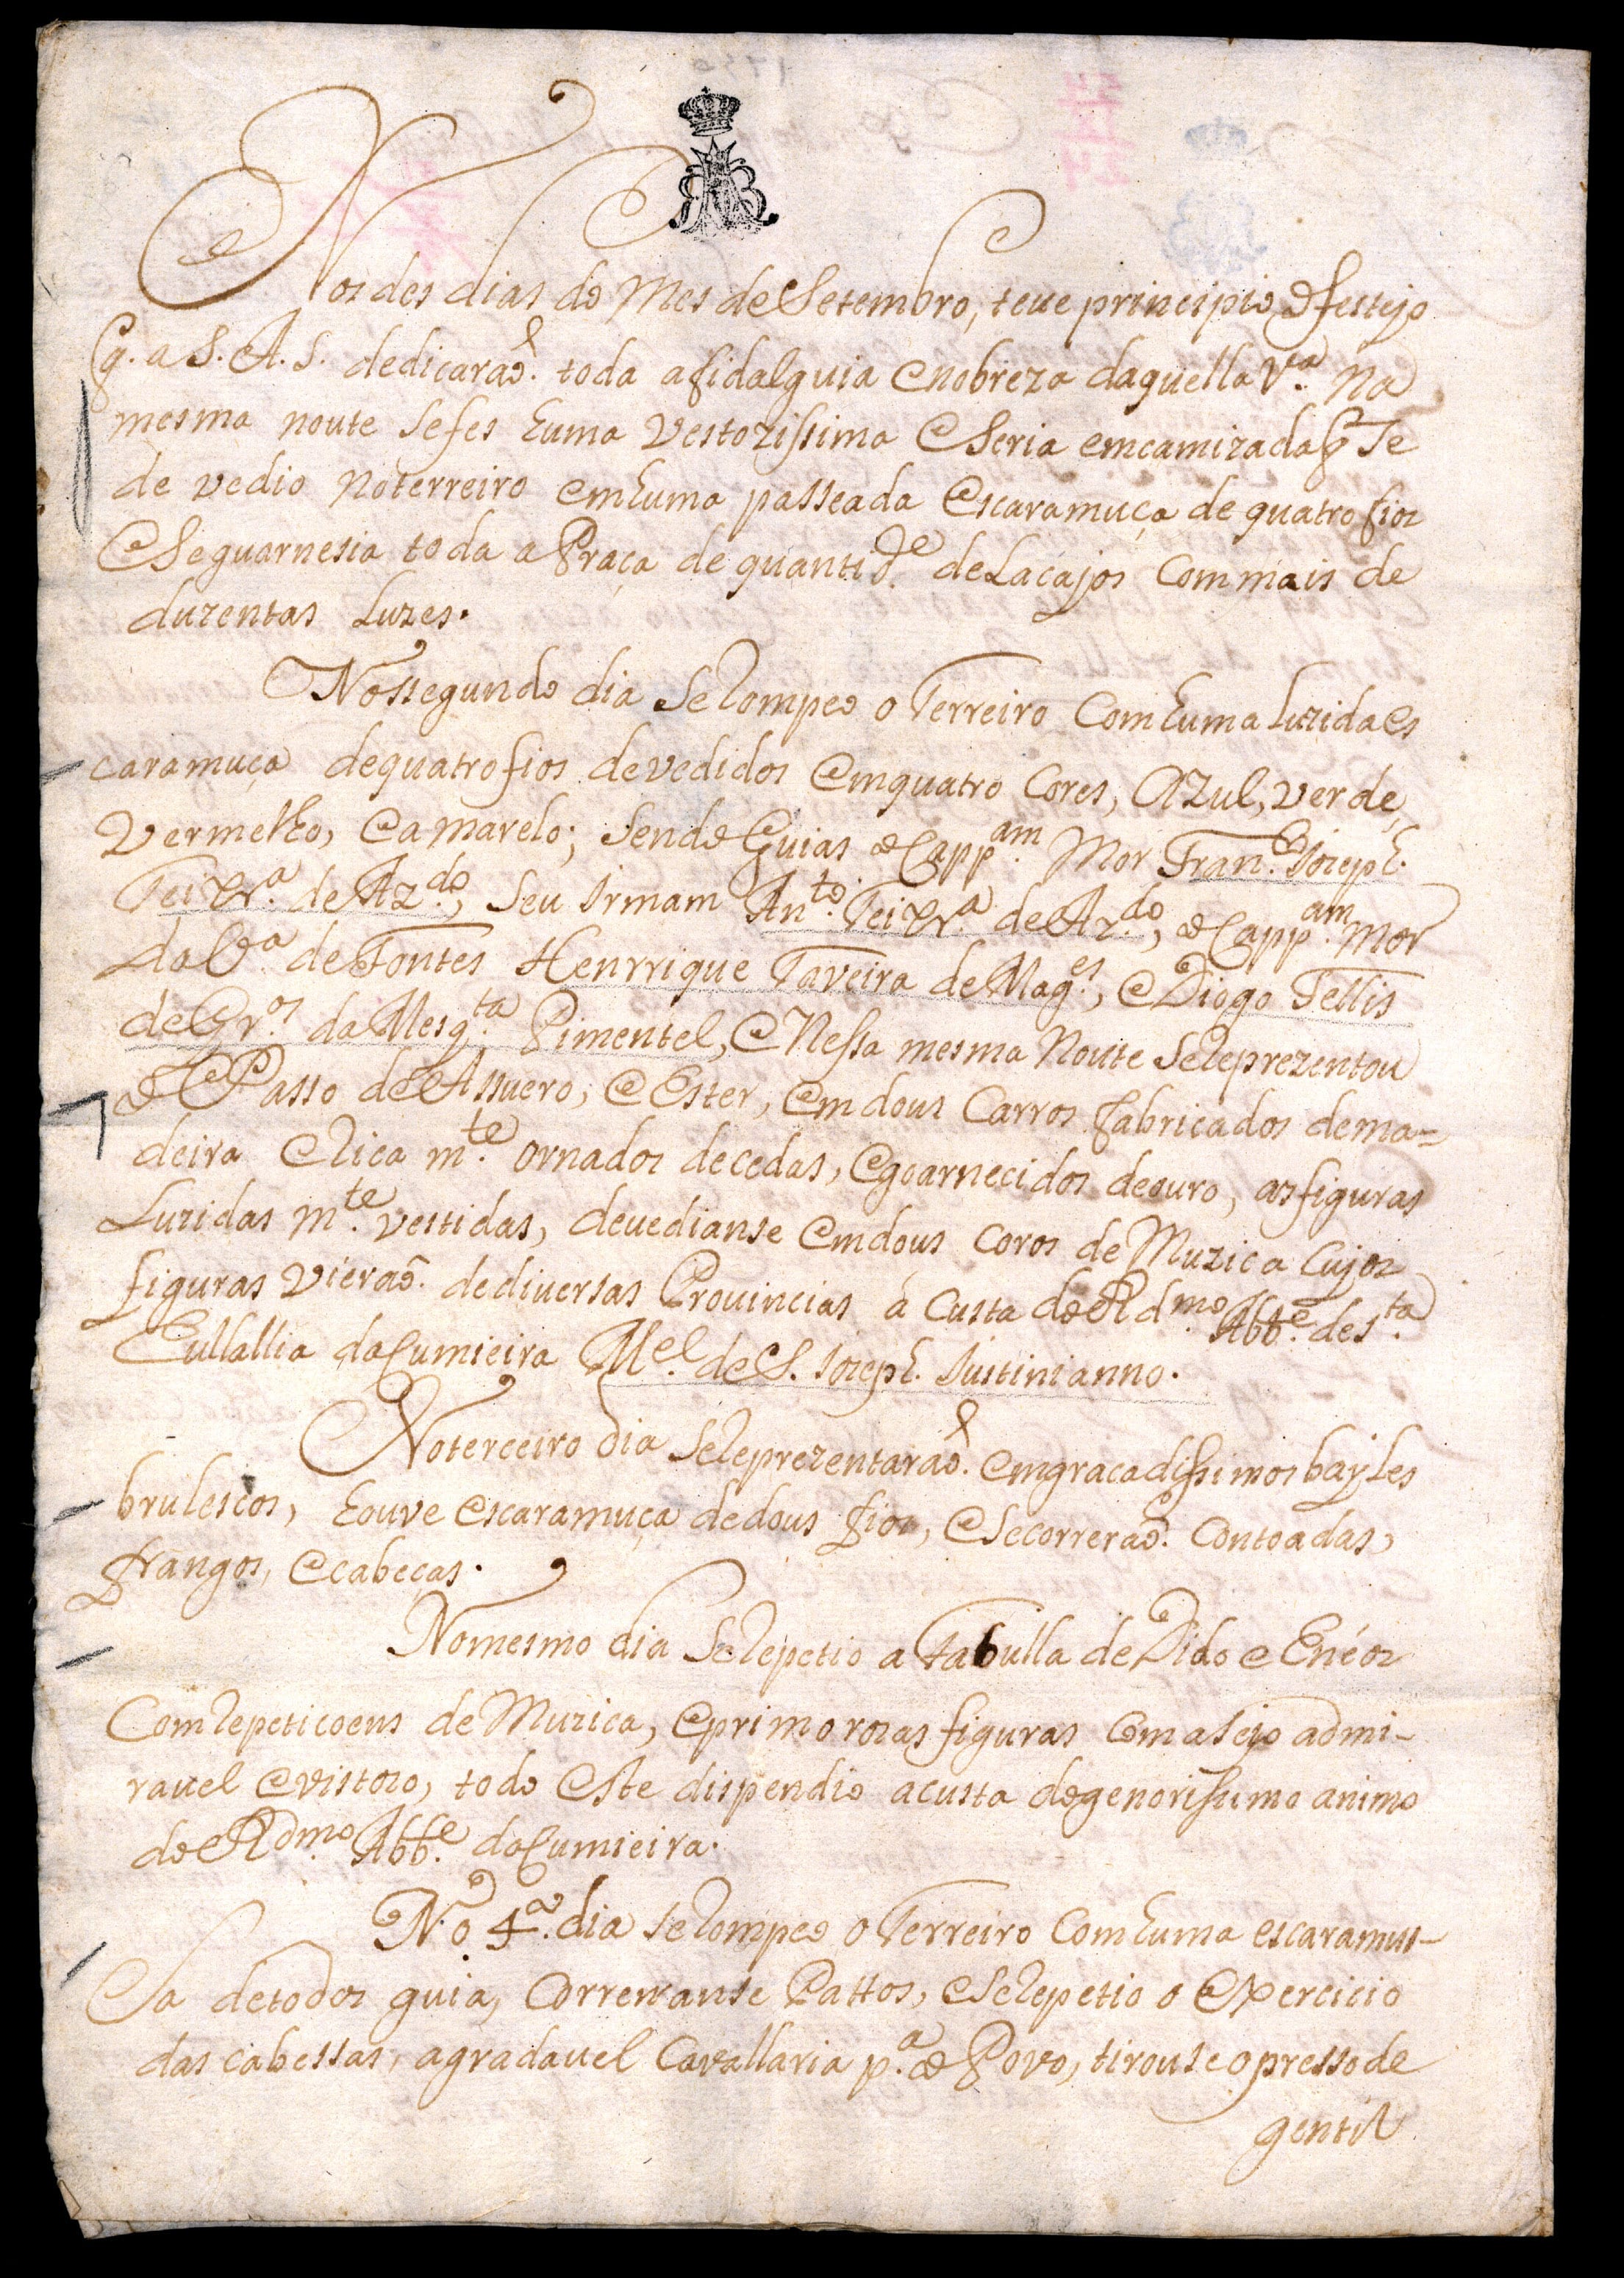 Nos des dias do Mes de Setembro, teue principio o festejo
q. a S. A. S. dedicaraõ. toda a fidalguia e nobreza daquella V.ª Na
mesma noute se fes huma vestozissima e seria emcamizada q̃ se
devedio no terreiro em huma passeada escaramuça de quatro fios
e se guarnesia toda a Praça de quantid.e de Lacajos com mais de
duzentas Luzes.
No ssegundo dia se rompeo o Terreiro Com huma Luzida es
caramuça de quatro fios devedidos em quatro Cores, Azul, verde,
Vermelho, e amarelo; sendo Guias o Capp.am Mor Fran.co Jozeph.
Teixr.ª de Az.do, seu Irmam An.to Teixr.ª de Az.do, o Capp.am Mor
da V.ª de Fontes Henrrique Taveira de Mag.es, e Diogo Tellis
de Gr.os da Mesq.ta Pimentel, e Nessa mesma Noute se reprezentou
o Passo de Assuero, e Ester, em dous Carros fabricados de ma=
deira e rica m.te ornados de cedas, e goarnecidos de ouro, as figuras
Luzidas m.te vestidas, deuedianse em dous Coros de Muzica Cujos
figuras vieraõ. de diuersas Prouincias á Custa do R.dmo Abb.e de S.ta
Eullallia da Cumieira M.el de S. Jozeph. Justinianno.
No terceiro dia se reprezentaraõ. emgracadissimos bayles
brulescos, houve escaramuça de dous fios, e se correraõ. Contoadas,
frangos, e cabecas.
No mesmo dia se repetio a Fabulla de Dido e Enéos
Com repeticoens de Muzica, e primorozas figuras Com asejo admi-
rauel e vistozo, todo este dispendio a custa do genorissimo animo
do R.dmo Abb.e da Cumieira.
N.o 4.º dia se rompeo o Terreiro Com huma escaramus-
sa de todos guia, Correranse Pattos, e se repetio o Exercicio
das cabessas, agradauel Cavallaria p.ª o Povo, tirouse o presso de
gentil